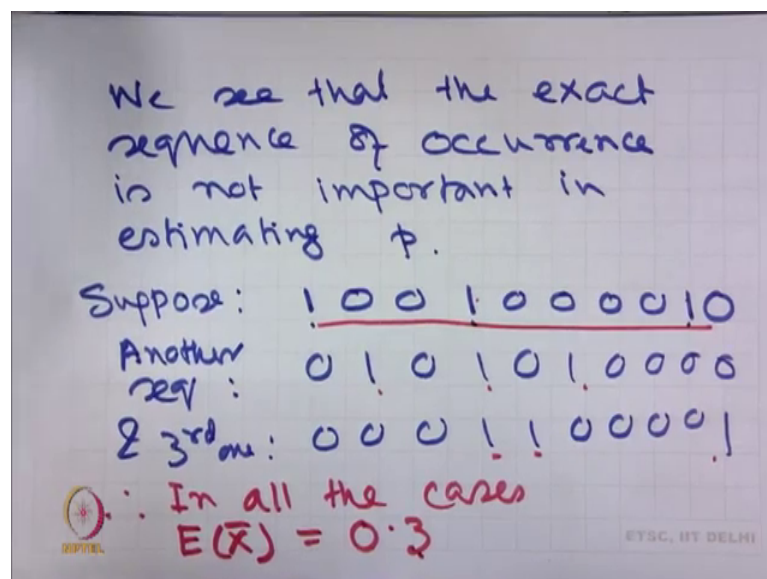 We see that the exact
sequence of occurrence
is not important in
estimating p.
Suppose: 1 0 0 1 0 0 0 0 1 0
Another seq: 0 1 0 1 0 1 0 0 0 0
& 3rd one: 0 0 0 1 1 0 0 0 0 1
∴ In all the cases
E(x̄) = 0.3
NPTEL
ETSC, IIT DELHI